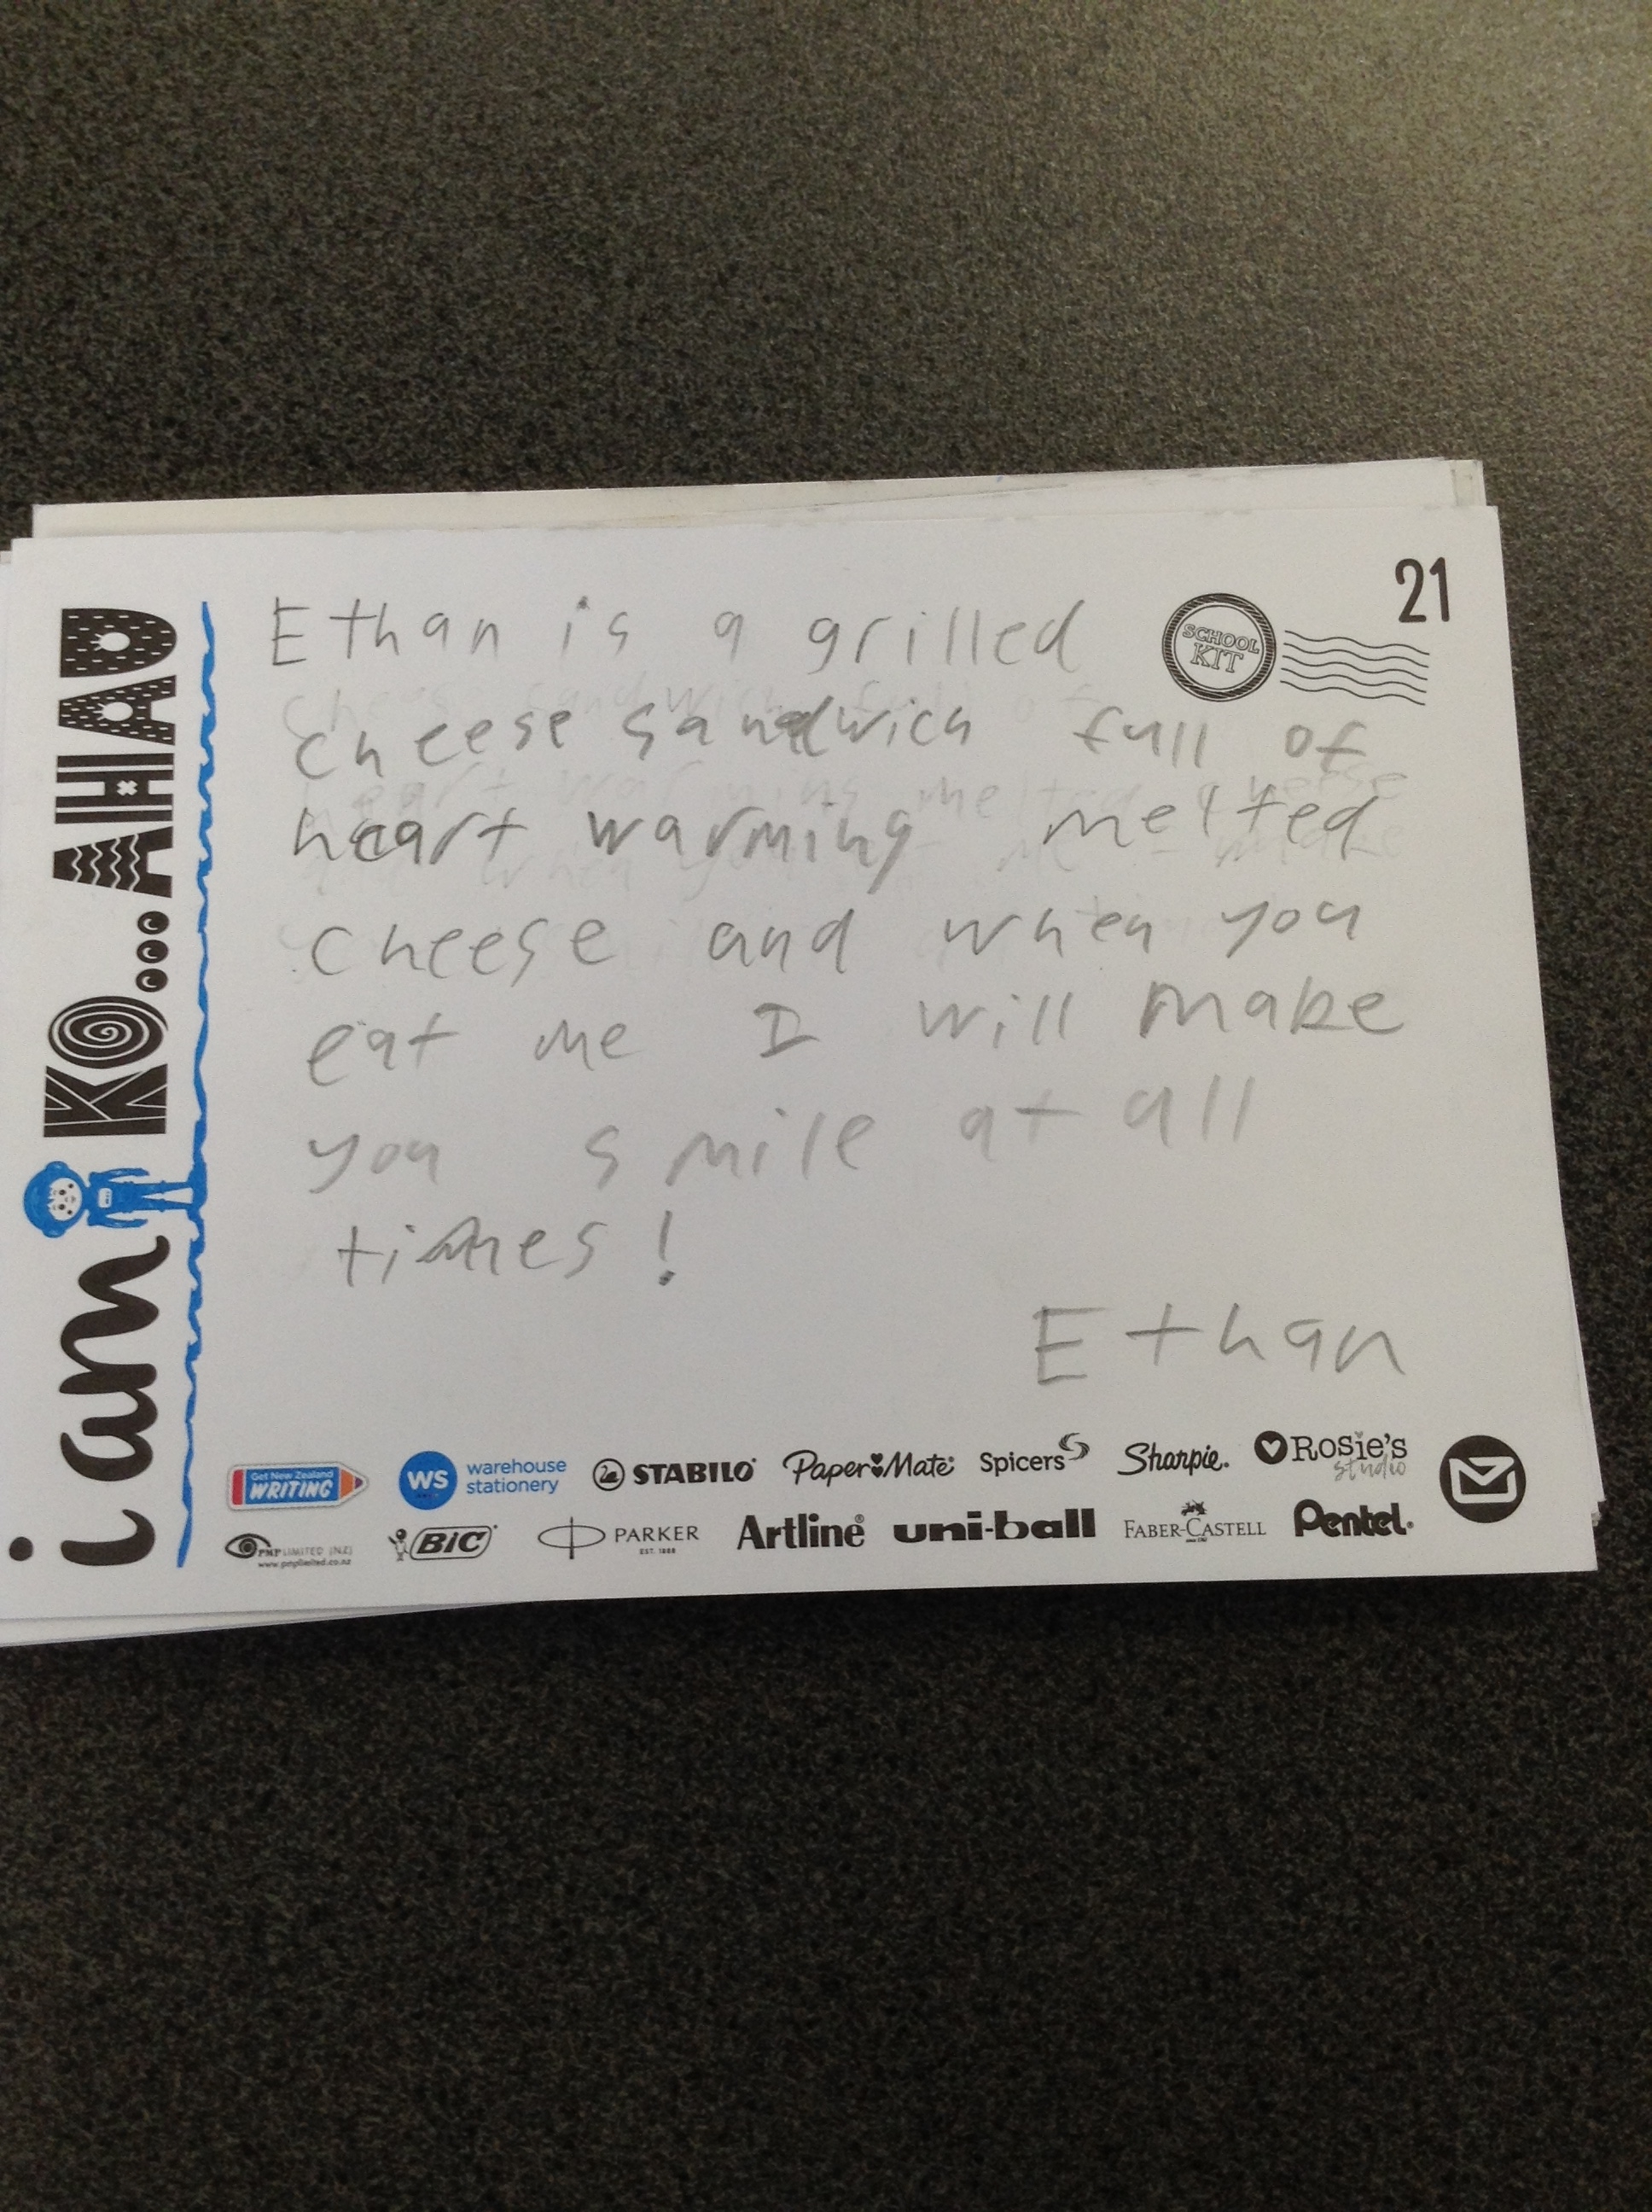 21
SCHOOL
KIT
Ethan is a grilled
cheese sandwich full of
heart warming melted
cheese and when you
eat me I will make
you smile at all
times!
Ethan
i am KO...AHAU
Get New Zealand
WRITING
WS warehouse
stationery
STABILO
Paper Mate
Spicers
Sharpie.
Rosie's
studio
PMP LIMITED (NZ)
www.pmplimited.co.nz
BIC
PARKER
EST. 1888
Artline
uni-ball
FABER-CASTELL
Pentel